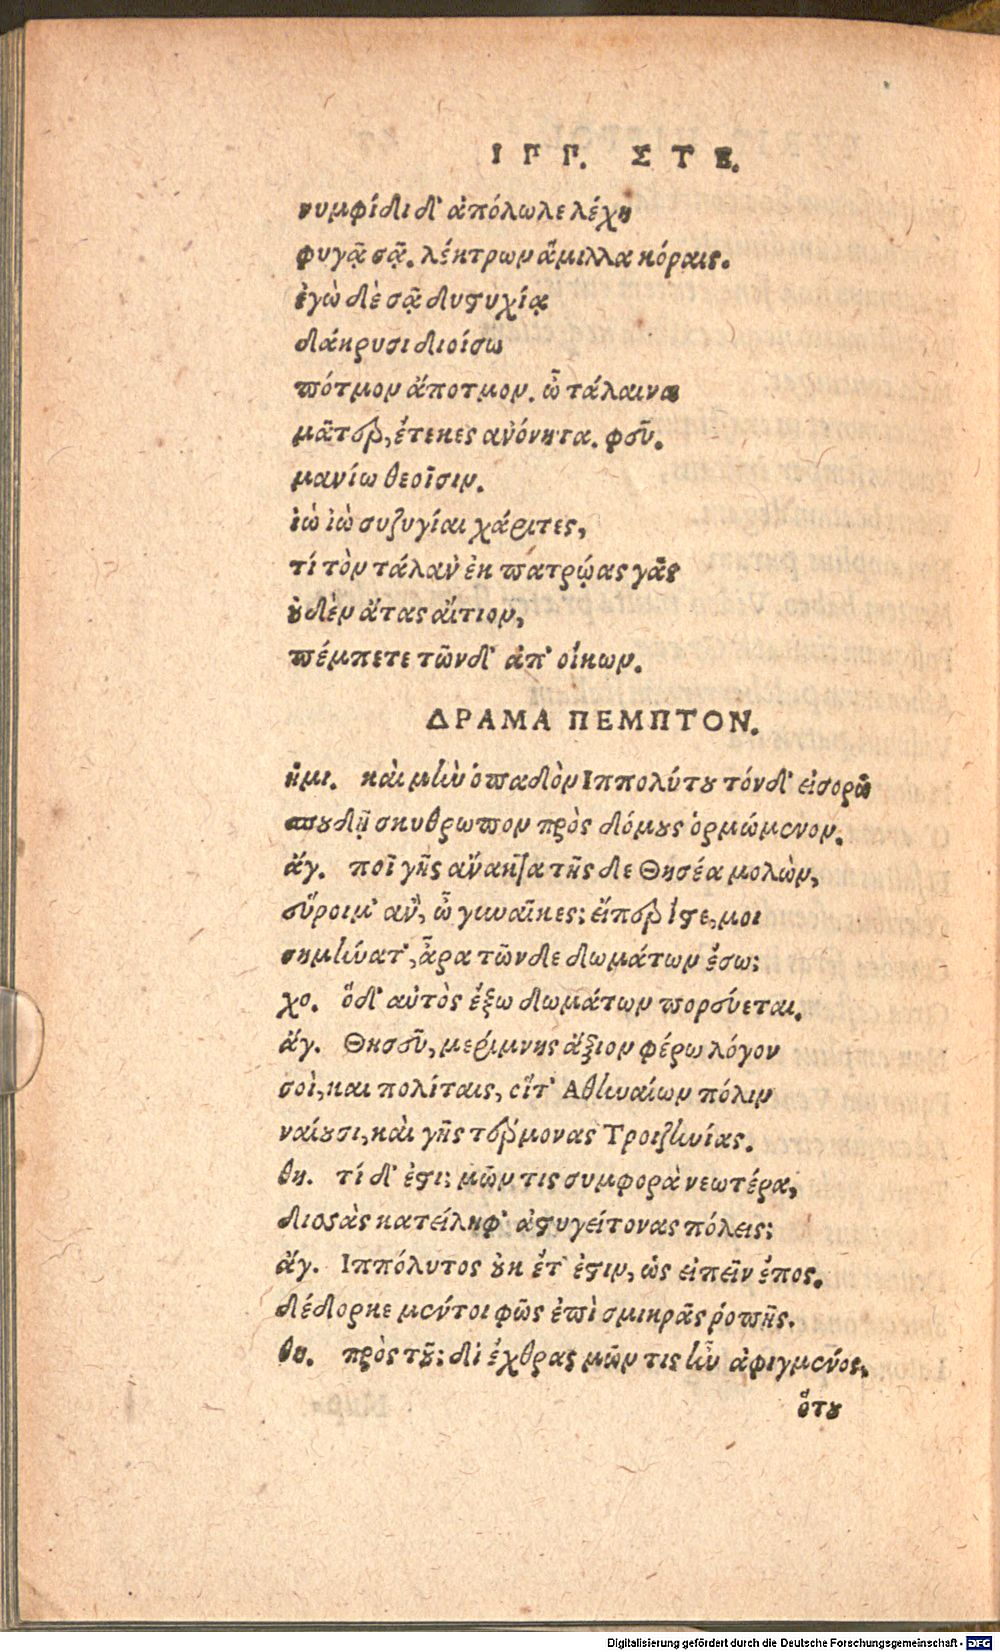 ΙΠΠ. ΣΤΕ.
νυμφίδι δ' ἀπόλωλε λέχη
φυγᾷ σᾷ. λέκτρων ἅμιλλα κόραις.
ἐγὼ δὲ σᾷ δυστυχίᾳ
δάκρυσι διοίσω
πότμον ἄποτμον. ὦ τάλαινα
μᾶτερ, ἔτεκες ἀνόνητα. φεῦ.
μανίω θεοῖσιν.
ἰὼ ἰὼ συζυγίαι χάριτες,
τί τὸν τάλαν' ἐκ πατρῴας γᾶς
οὐδὲν ἄτας αἴτιον,
πέμπετε τῶνδ' ἀπ' οἴκων.
ΔΡΑΜΑ ΠΕΜΠΤΟΝ.
ἡμι. καὶ μὴν ὀπαδὸν Ιππολύτου τόνδ' εἰσορῶ
σπουδῇ σκυθρωπὸν πρὸς δόμους ὁρμώμενον.
ἄγ. ποῖ γῆς ἄνακτα τῆς δε Θησέα μολὼν,
εὕροιμ' ἂν, ὦ γυναῖκες; εἴπερ ἴστε, μοι
σημήνατ', ἆρα τῶνδε δωμάτων ἔσω;
χο. ὅδ' αὐτὸς ἔξω δωμάτων πορεύεται.
ἄγ. Θησεῦ, μερίμνης ἄξιον φέρω λόγον
σοὶ, και πολίταις, οἵτ' Αθηναίων πόλιν
ναίουσι, καὶ γῆς τέρμονας Τροιζηνίας.
θη. τί δ' ἔστι; μῶν τις συμφορὰ νεωτέρα,
δισσὰς κατείληφ' ἀστυγείτονας πόλεις;
ἄγ. Ιππόλυτος οὐκ ἔτ' ἔστιν, ὡς εἰπεῖν ἔπος.
δέδορκε μέντοι φῶς ἐπὶ σμικρᾶς ῥοπῆς.
θη. πρὸς τοῦ; δι ἔχθρας μῶν τις ἦν ἀφιγμένος,
ὅτου
Digitalisierung gefördert durch die Deutsche Forschungsgemeinschaft - DFG